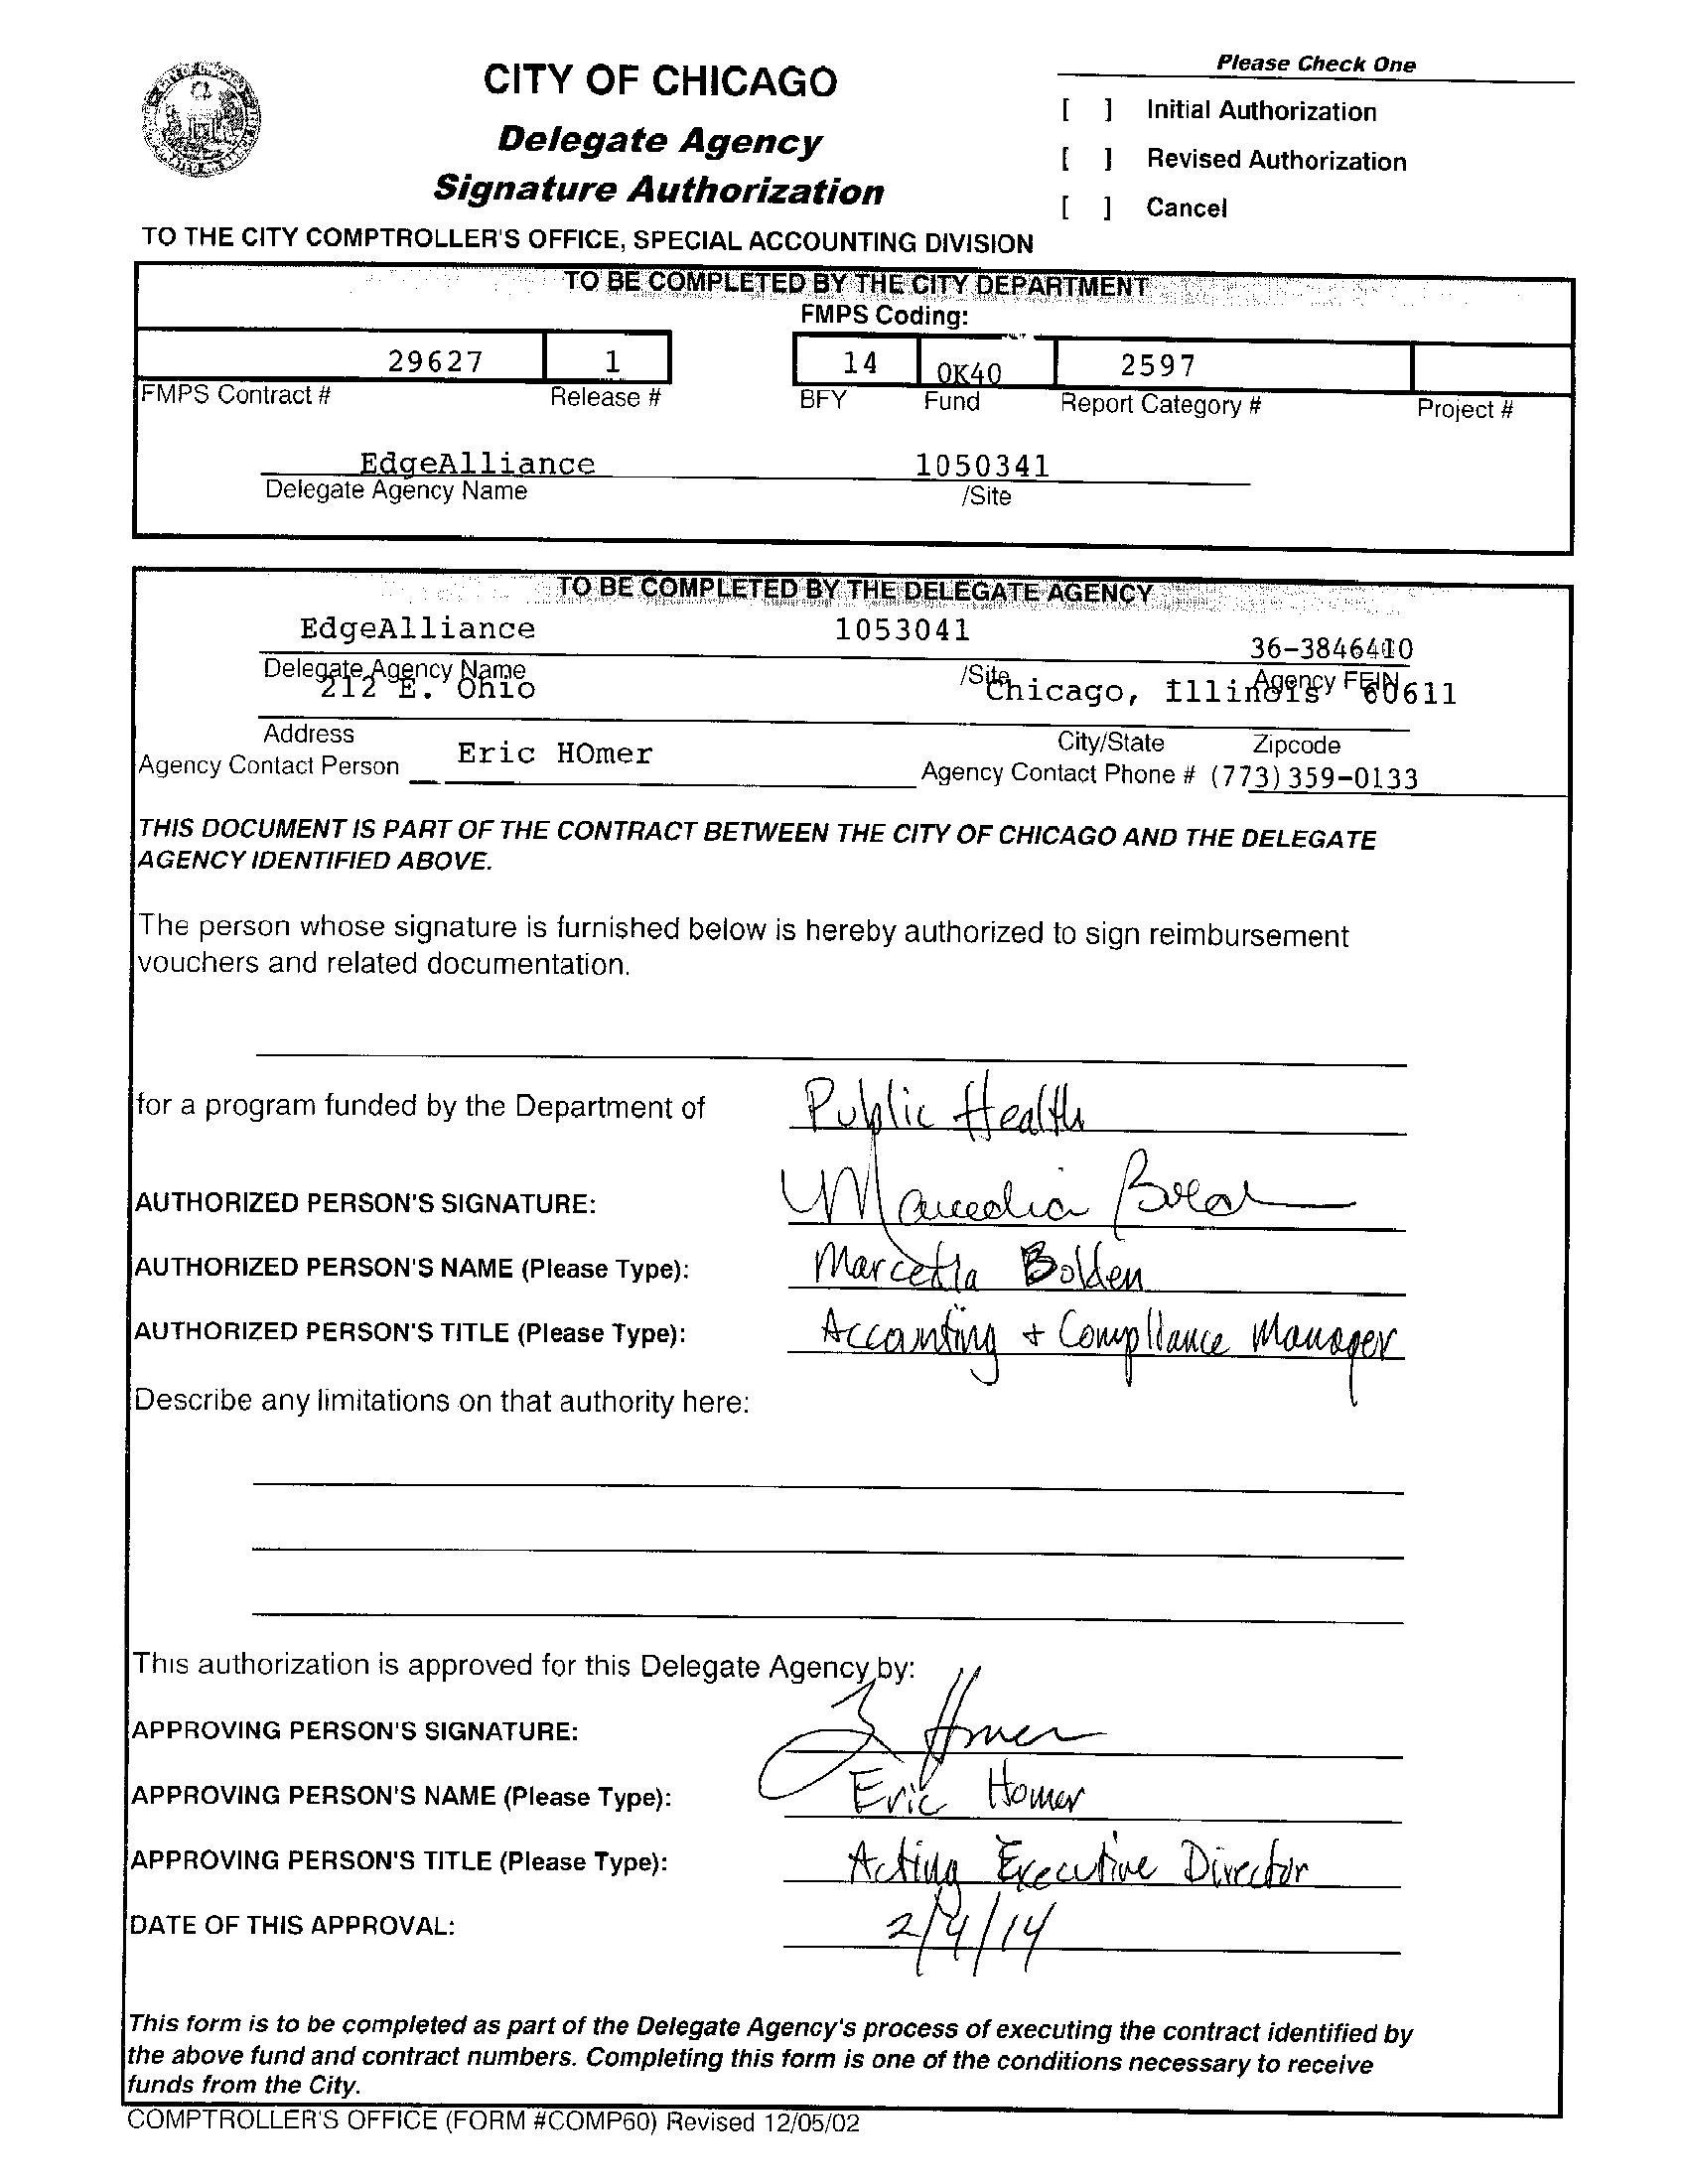 CITY OF CHICAGO
Delegate Agency
Signature Authorization
Please Check One
[ ] Initial Authorization
[ ] Revised Authorization
[ ] Cancel
TO THE CITY COMPTROLLER'S OFFICE, SPECIAL ACCOUNTING DIVISION
TO BE COMPLETED BY THE CITY DEPARTMENT
FMPS Coding:
29627 1 14 0K40 2597
FMPS Contract # Release # BFY Fund Report Category # Project #
EdgeAlliance 1050341
Delegate Agency Name /Site
TO BE COMPLETED BY THE DELEGATE AGENCY
EdgeAlliance 1053041 36-3846410
Delegate Agency Name /Site Agency FEIN
212 E. Ohio Chicago, Illinois 60611
Address City/State Zipcode
Agency Contact Person Eric HOmer Agency Contact Phone # (773)359-0133
THIS DOCUMENT IS PART OF THE CONTRACT BETWEEN THE CITY OF CHICAGO AND THE DELEGATE
AGENCY IDENTIFIED ABOVE.
The person whose signature is furnished below is hereby authorized to sign reimbursement
vouchers and related documentation.
for a program funded by the Department of Public Health
AUTHORIZED PERSON'S SIGNATURE:
AUTHORIZED PERSON'S NAME (Please Type): Marcetta Bolden
AUTHORIZED PERSON'S TITLE (Please Type): Accounting + Compliance Manager
Describe any limitations on that authority here:
This authorization is approved for this Delegate Agency by:
APPROVING PERSON'S SIGNATURE: Homer
APPROVING PERSON'S NAME (Please Type): Eric Homer
APPROVING PERSON'S TITLE (Please Type): Acting Executive Director
DATE OF THIS APPROVAL: 2/4/14
This form is to be completed as part of the Delegate Agency's process of executing the contract identified by
the above fund and contract numbers. Completing this form is one of the conditions necessary to receive
funds from the City.
COMPTROLLER'S OFFICE (FORM #COMP60) Revised 12/05/02